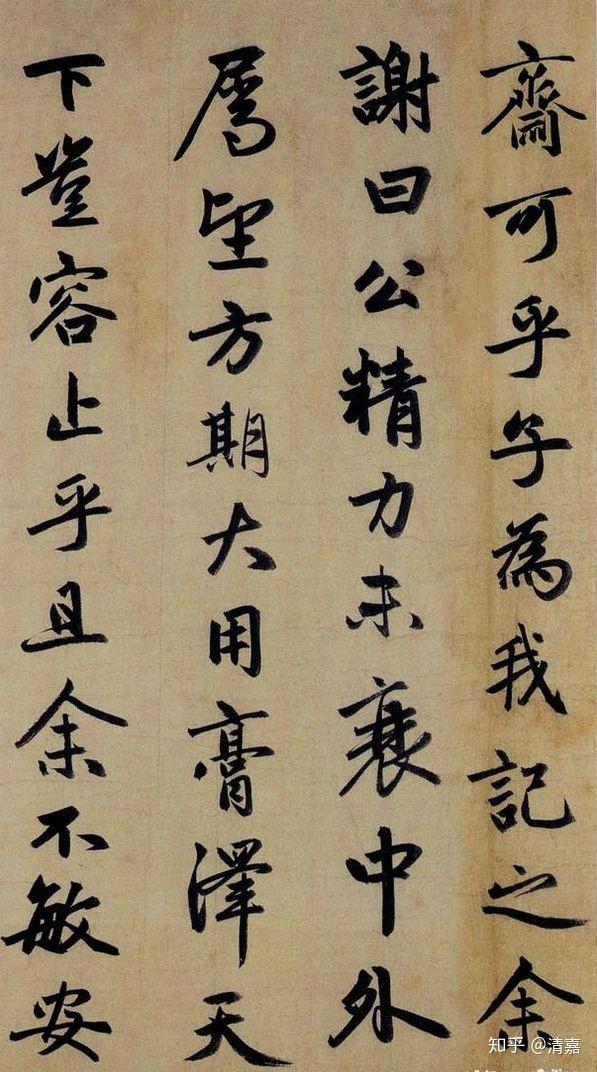 齋可乎子為我記之余
謝曰公精力未衰中外
屬望方期大用膏澤天
下豈容止乎且余不敏安
知乎 @清嘉